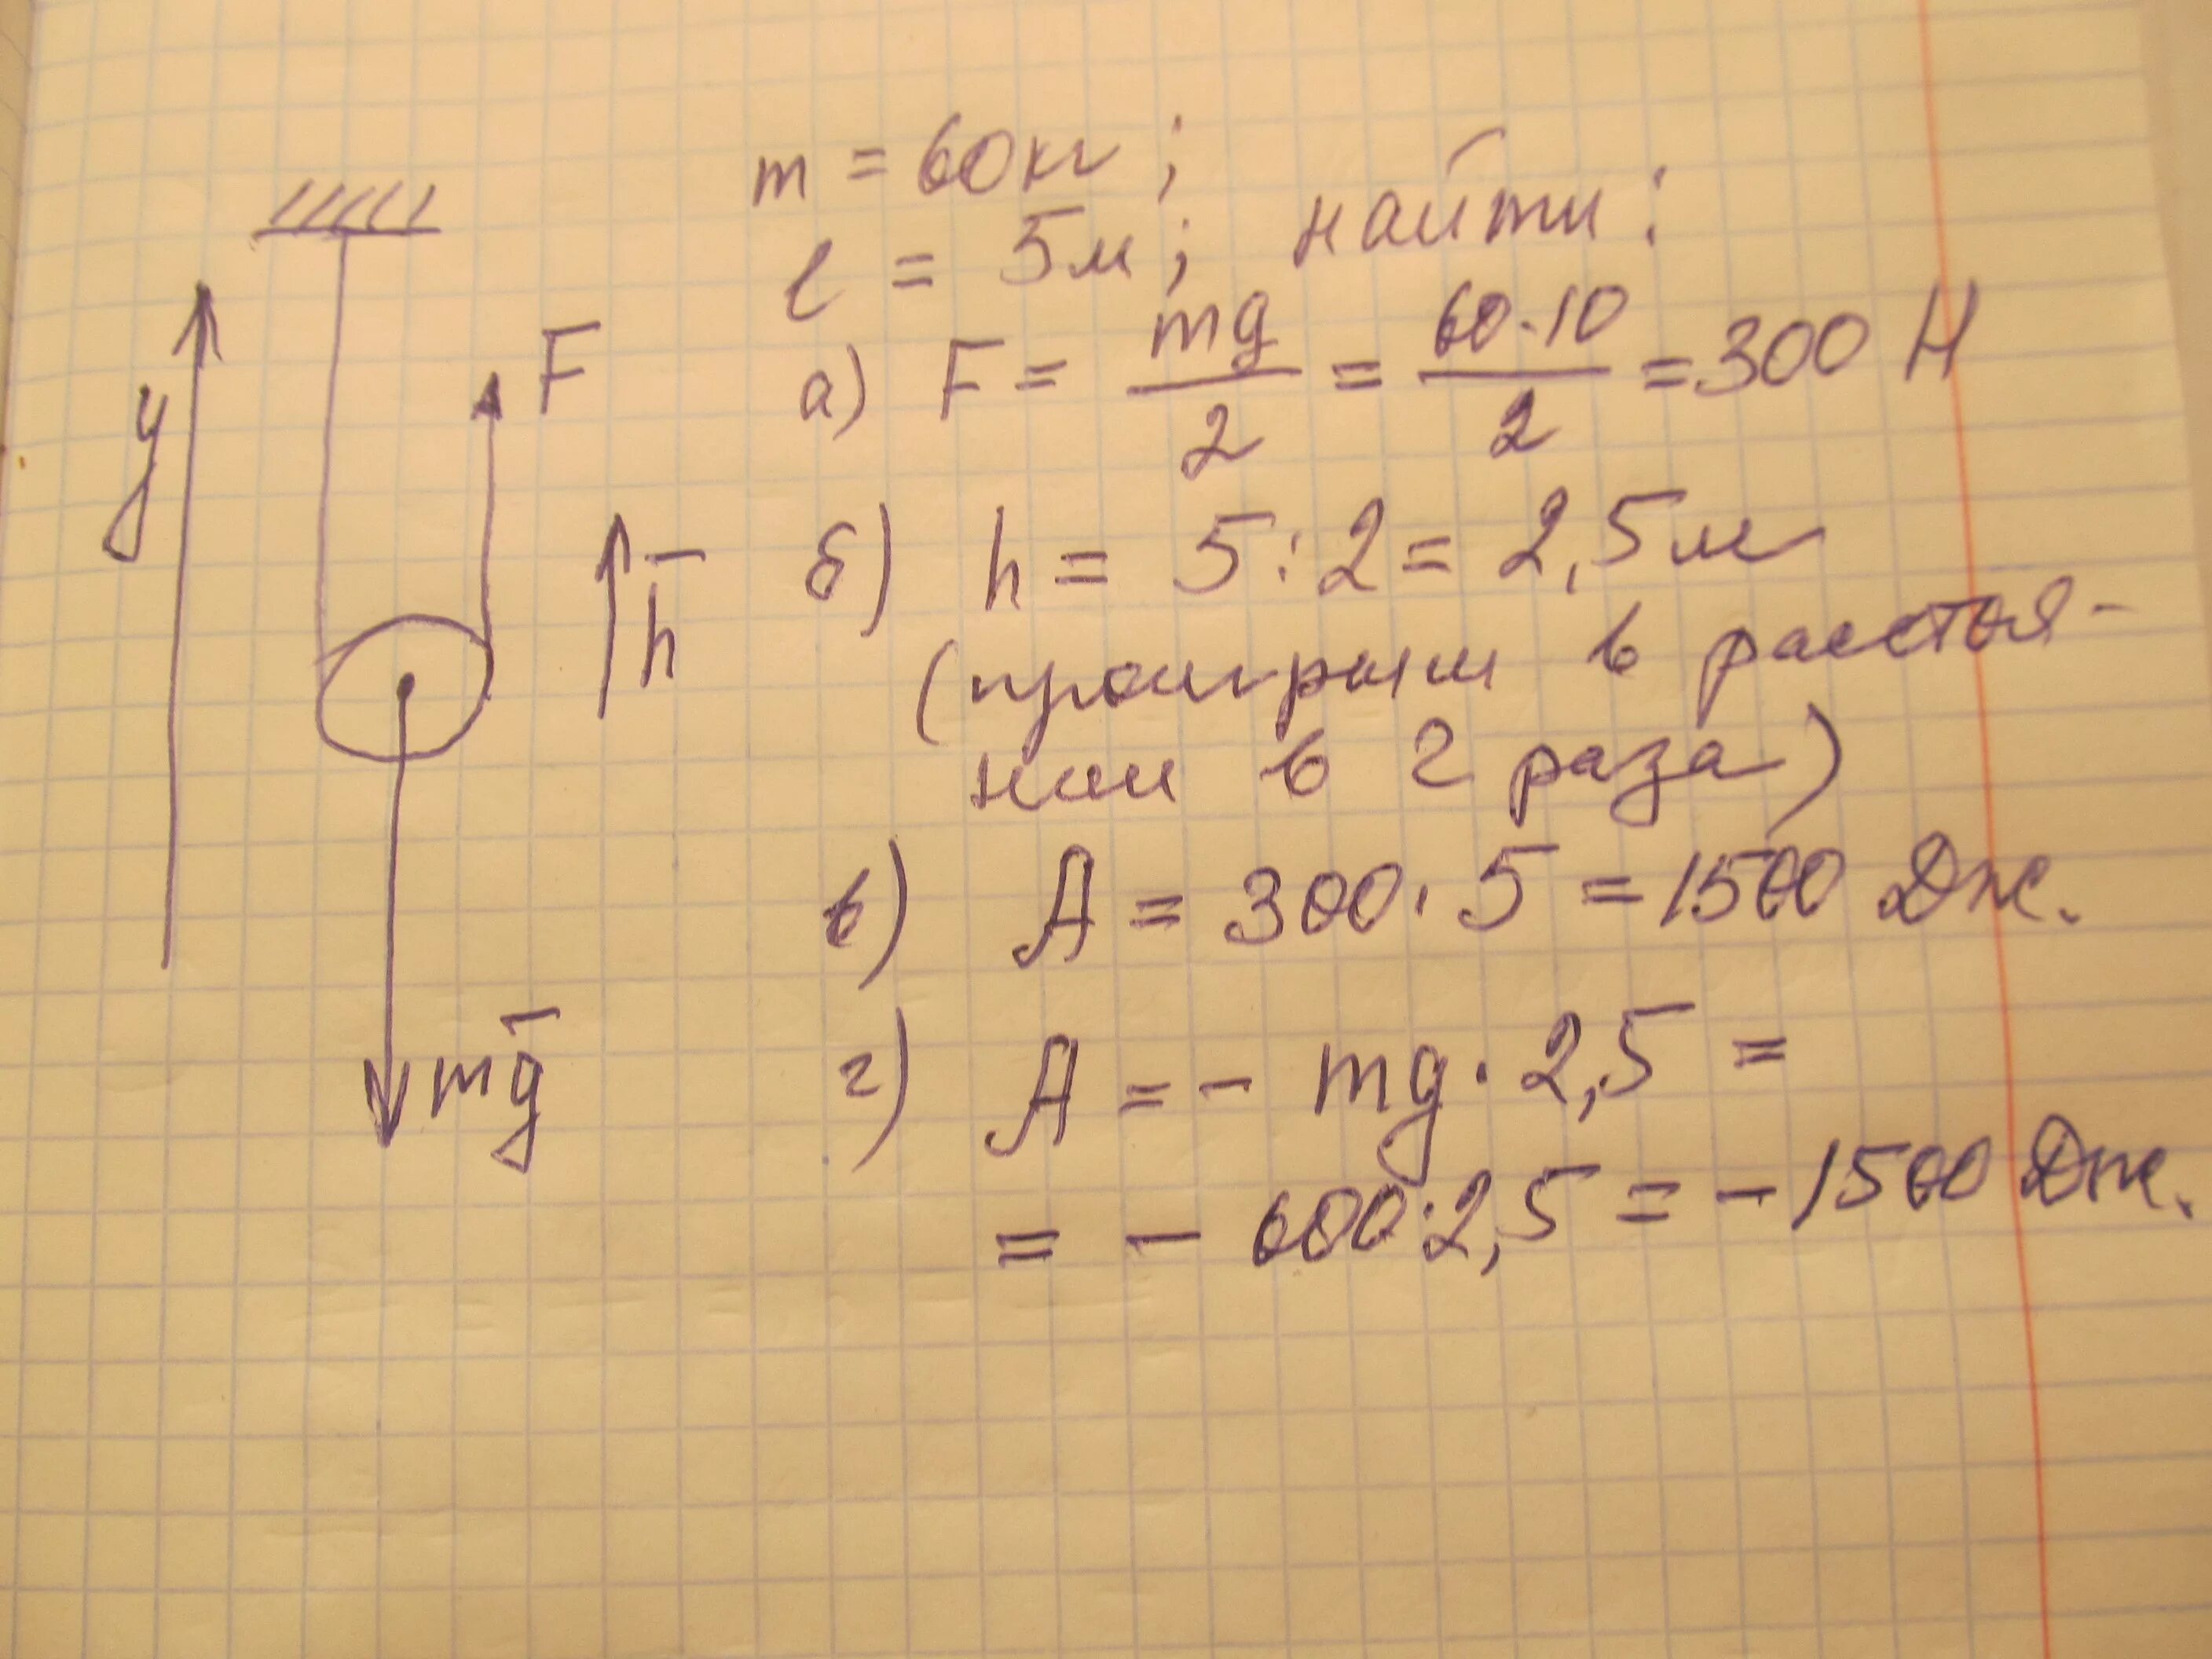 m = 60кг ;
l = 5м ; найти :
y
F
а) F = mg/2 = 60·10/2 = 300 Н
h
б) h = 5:2 = 2,5м
(проигрыш в расстоя-
нии в 2 раза)
в) A = 300 · 5 = 1500 Дж.
mg
г) A = - mg · 2,5 =
= - 600:2,5 = - 1500 Дж.